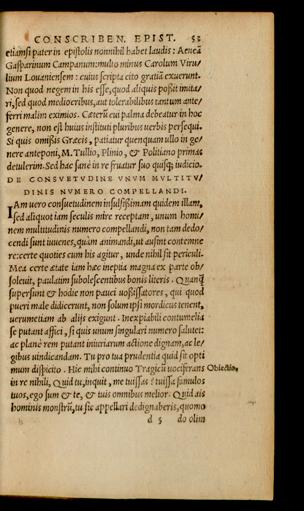 CONSCRIBEN. EPIST. 53
etiamsi pater in epistolis nonnihil habet laudis: Aeneã
Gasparinum Campanum: multo minus Carolum Viru
lium Louaniensem: cuius scripta cito gratiã exuerunt.
Non quod negem in his esse, quod aliquis possit imita
ri, sed quod mediocribus, aut tolerabilibus tantum ante/
ferri malim eximios. Caeterũ cui palma debeatur in hoc
genere, non est huius instituti pluribus uerbis persequi.
Si quis omissis Graecis, patiatur quenquam ullo in ge/
nere anteponi, M. Tullio, Plinio, & Politiano primas
detulerim. Sed hac sane in re fruatur suo quisq; iudicio.
DE CONSVETVDINE VNVM MVLTITV/
DINIS NVMERO COMPELLANDI.
IAm uero consuetudinem insulsissimam quidem illam,
sed aliquot iam seculis mire receptam, unum homi/
nem multitudinis numero compellandi, non tam dedo/
cendi sunt iuuenes, quàm animandi, ut ausint contemne
re: certe quoties cum his agitur, unde nihil sit periculi.
Mea certe aetate iam haec ineptia magna ex parte ob/
soleuit, paulatim subolescentibus bonis literis. Quanq̃
supersunt & hodie non pauci uoßissatores, qui quod
pueri male didicerunt, non solum ipsi mordicus tenent,
uerumetiam ab alijs exigunt. Inexpiabili contumelia
se putant affici, si quis unum singulari numero salutet:
ac plane rem putant iniuriarum actione dignam, ac le/
gibus uindicandam. Tu pro tua prudentia quid sit opti
mum dispicito. Hic mihi continuo Tragicũ uociferans Obiectio,
in re nihili, Quid tu, inquit, me tuissas? tuissa famulos
tuos, ego sum & te, & tuis omnibus melior. Quid ais
hominis monstrũ, tu sic appellari dedignaberis, quomo
d 5 do olim